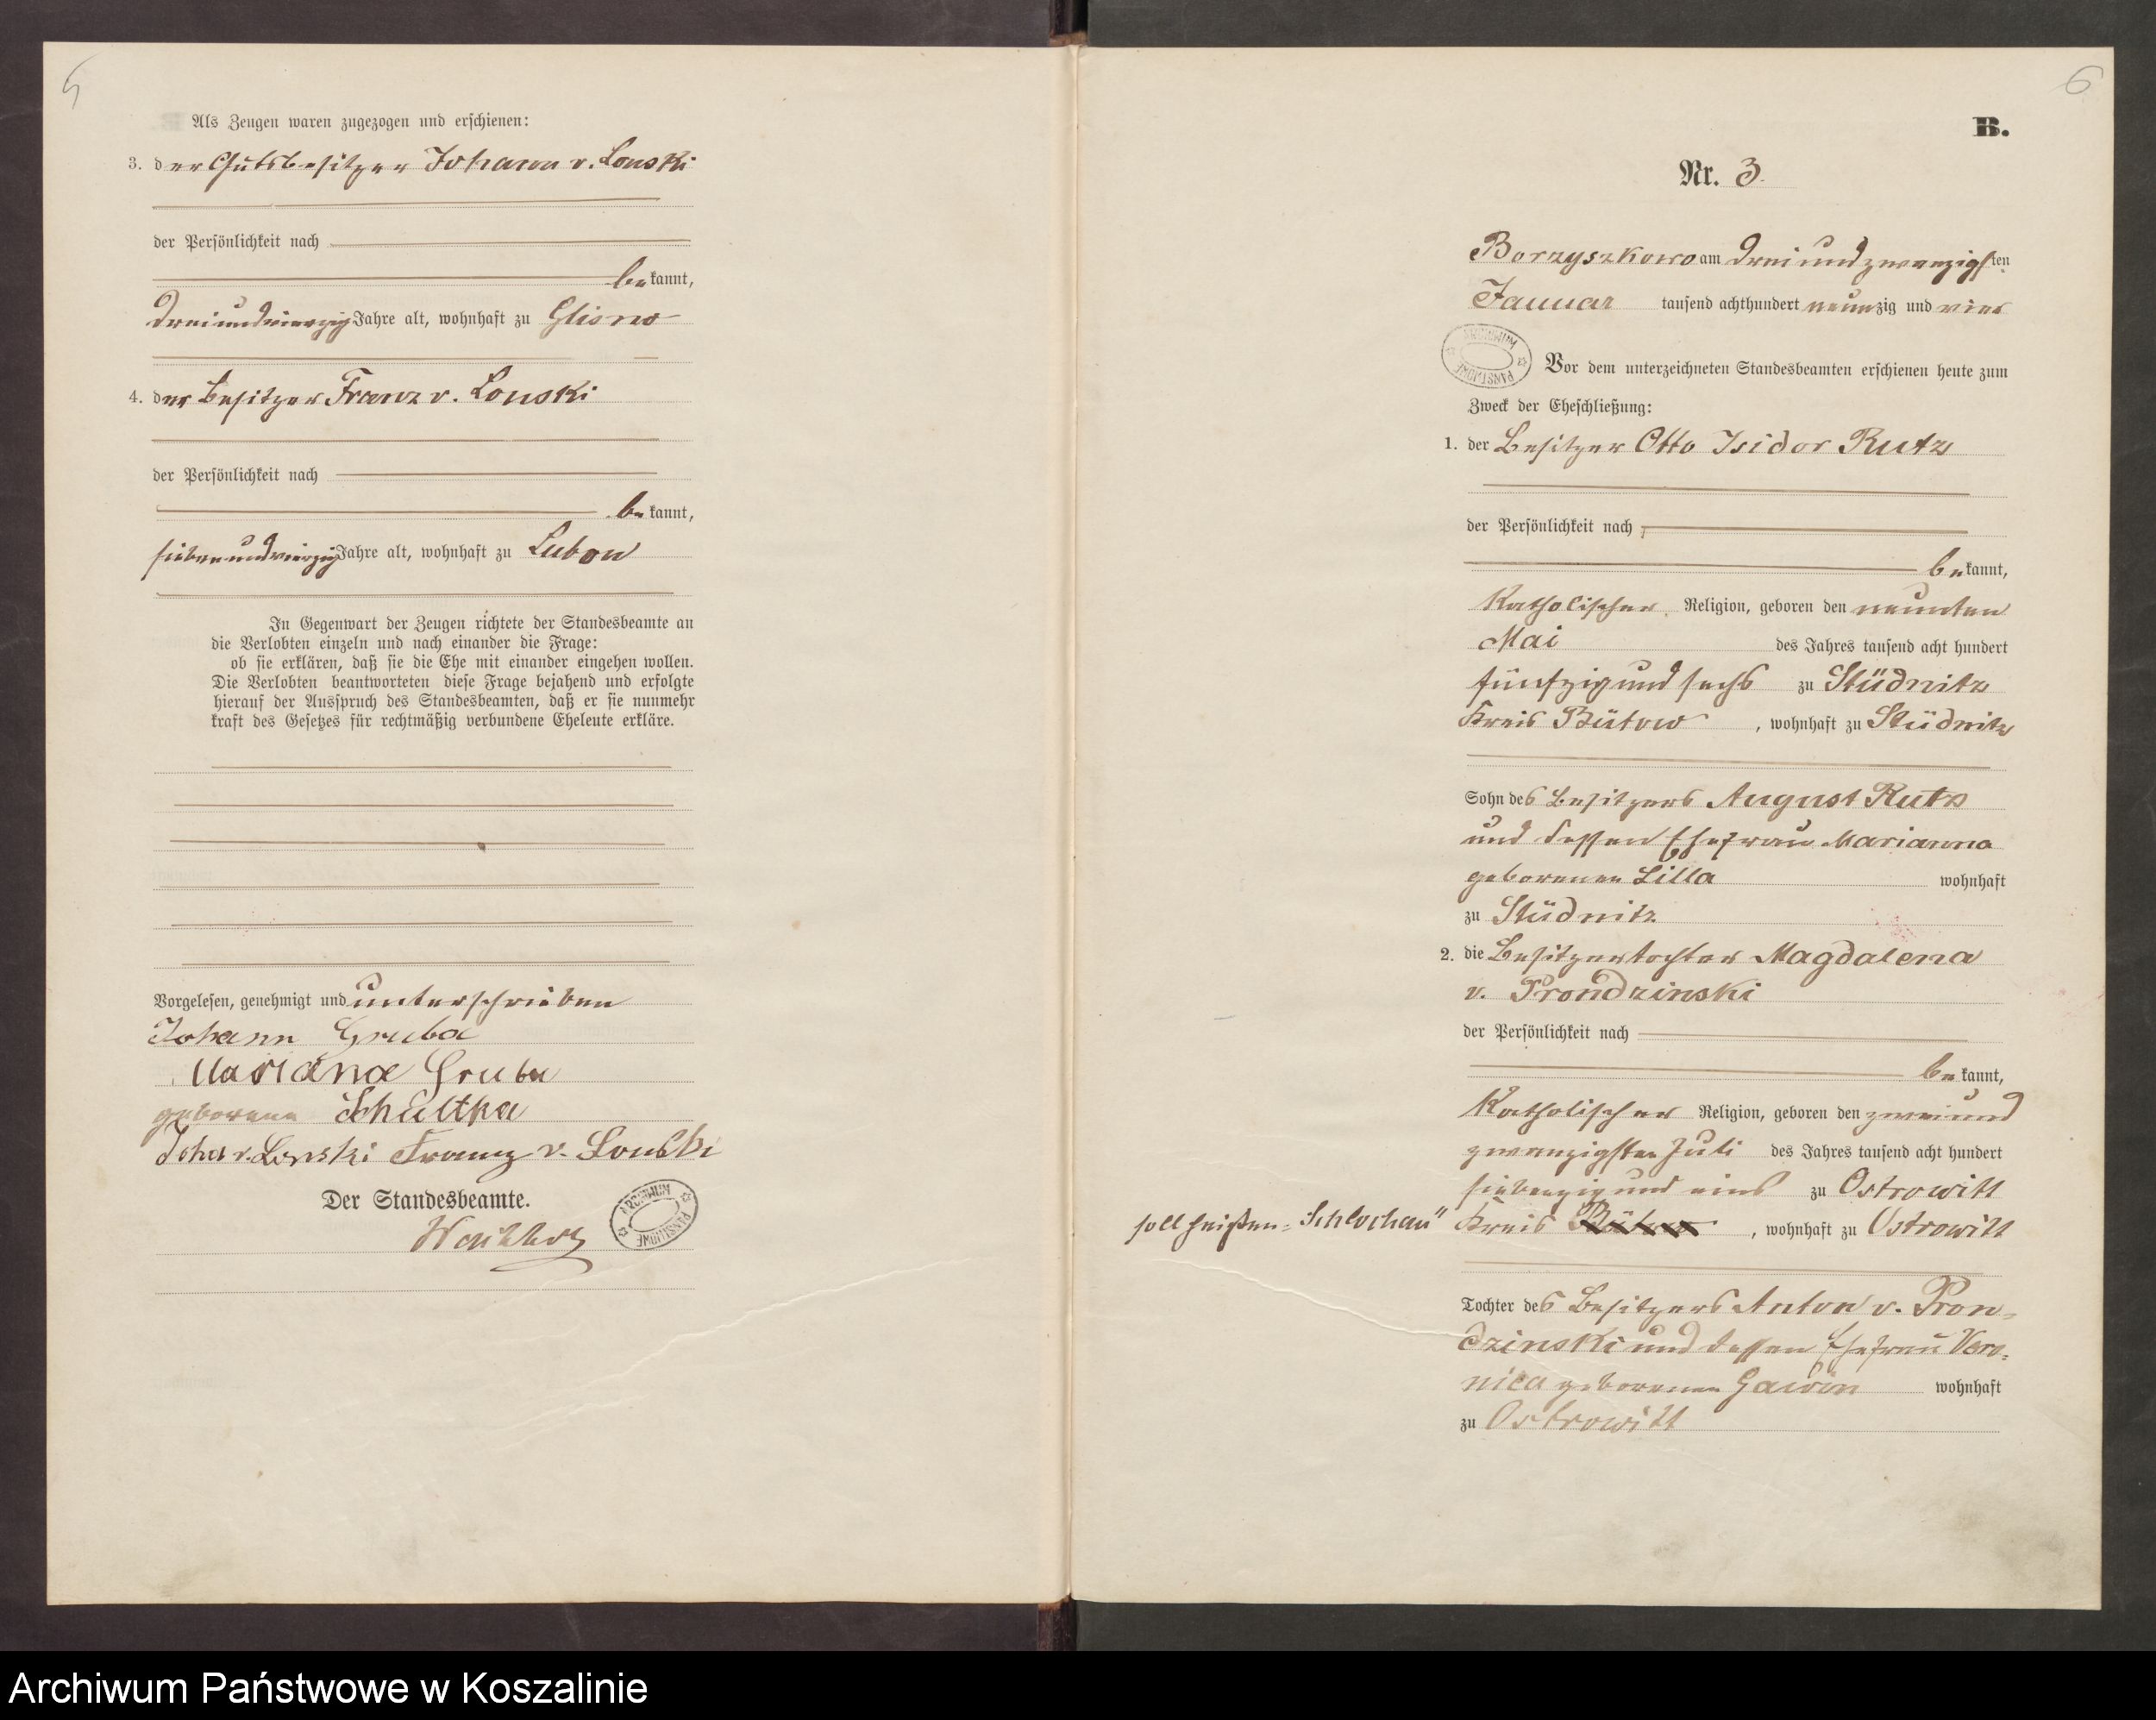 5
Als Zeugen waren zugezogen und erschienen:
3. der Gutsbesitzer Johann v. Lonski
der Persönlichkeit nach
bekannt,
dreiundvierzig Jahre alt, wohnhaft zu Glisno
4. der Besitzer Franz v. Lonski
der Persönlichkeit nach
bekannt,
siebenundvierzig Jahre alt, wohnhaft zu Lubon
In Gegenwart der Zeugen richtete der Standesbeamte an
die Verlobten einzeln und nach einander die Frage:
ob sie erklären, daß sie die Ehe mit einander eingehen wollen.
Die Verlobten beantworteten diese Frage bejahend und erfolgte
hierauf der Ausspruch des Standesbeamten, daß er sie nunmehr
kraft des Gesetzes für rechtmäßig verbundene Eheleute erkläre.
Vorgelesen, genehmigt und unterschrieben
Johann Gruba
Mariana Gruba
geborene Schultka
Joha v. Lonski Franz v. Lonski
Der Standesbeamte.
ARCHIWUM PAŃSTWOWE
6
B.
Nr. 3.
Borzyszkowo am dreiundzwanzigsten
Januar tausend achthundert neunzig und vier
ARCHIWUM PAŃSTWOWE
Vor dem unterzeichneten Standesbeamten erschienen heute zum
Zweck der Eheschließung:
1. der Besitzer Otto Isidor Rutz
der Persönlichkeit nach
bekannt,
katholischer Religion, geboren den neunten
Mai des Jahres tausend acht hundert
fünfzig und sechs zu Stüdnitz
Kreis Bütow, wohnhaft zu Stüdnitz
Sohn des Besitzers August Rutz
und dessen Ehefrau Marianna
geborenen Lilla wohnhaft
zu Stüdnitz
2. die Besitzertochter Magdalena
v. Prondzinski
der Persönlichkeit nach
bekannt,
katholischer Religion, geboren den zweiund
zwanzigsten Juli des Jahres tausend acht hundert
siebenzig und eins zu Ostrowitt
soll heißen „Schlochau" Kreis Bütow, wohnhaft zu Ostrowitt
Tochter des Besitzers Anton v. Pron=
dzinski und dessen Ehefrau Vero=
nica geborenen Gawin wohnhaft
zu Ostrowitt
Archiwum Państwowe w Koszalinie